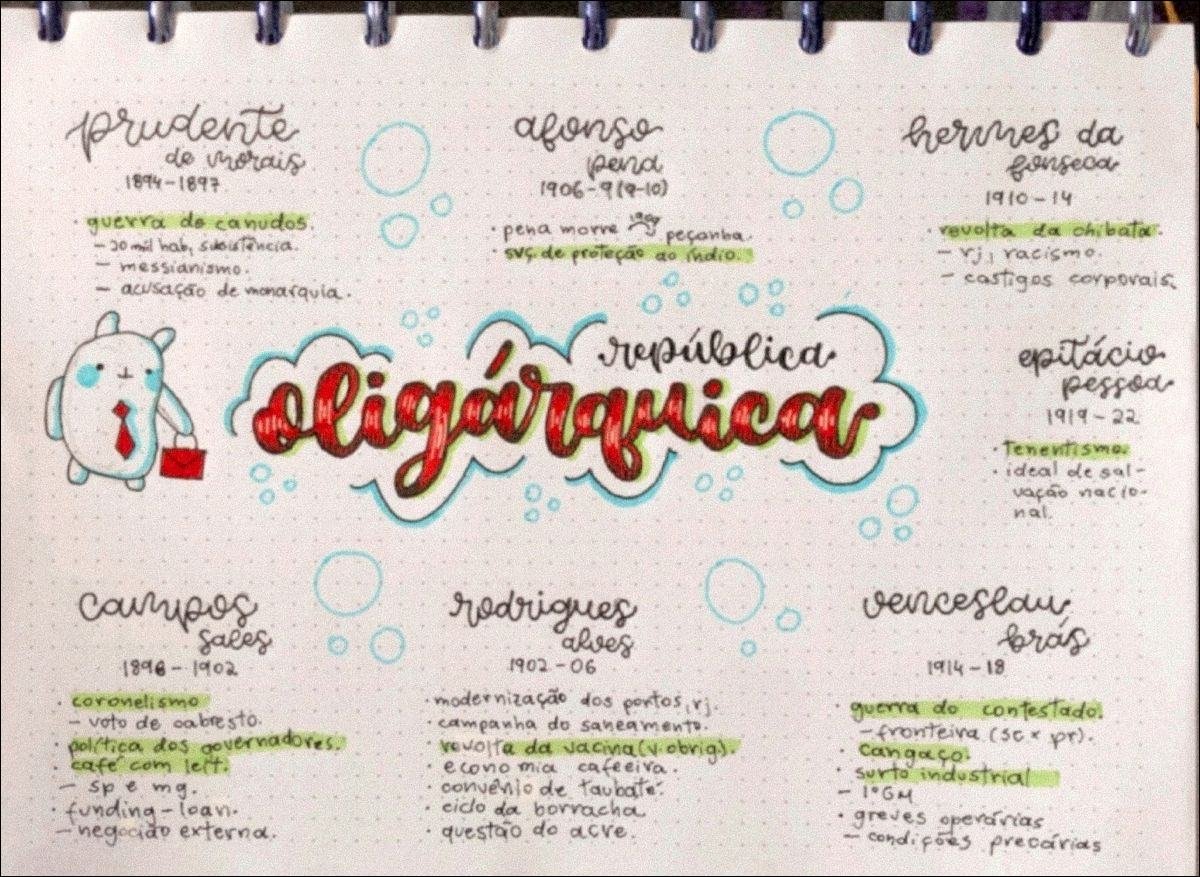 prudente
de morais
1894-1897
• guerra de canudos.
- 20 mil hab, subsistência.
- messianismo.
- acusação de monarquia.
afonso
pena
1906-9 (9-10)
• pena morre 1909 peçanha.
• svç. de proteção ao índio.
hermes da
fonseca
1910-14
• revolta da chibata.
- rj, racismo.
- castigos corporais.
república
oligárquica
epitácio
pessoa
1919-22
• Tenentismo.
• ideal de sal-
vação nacio-
nal.
campos
sales
1898-1902
• coronelismo
- voto de cabresto.
• política dos governadores.
• café com leit.
- sp e mg.
• funding-loan.
- negocião externa.
rodrigues
alves
1902-06
• modernização dos portos, rj.
• campanha do saneamento.
• revolta da vacina (v. obrig).
• economia cafeeira.
• convênio de taubaté.
• ciclo da borracha
• questão do acre.
venceslau
brás
1914-18
• guerra do contestado.
- fronteira (sc x pr).
• cangaço.
• surto industrial
- 1ºGM
• greves operárias
- condições precárias